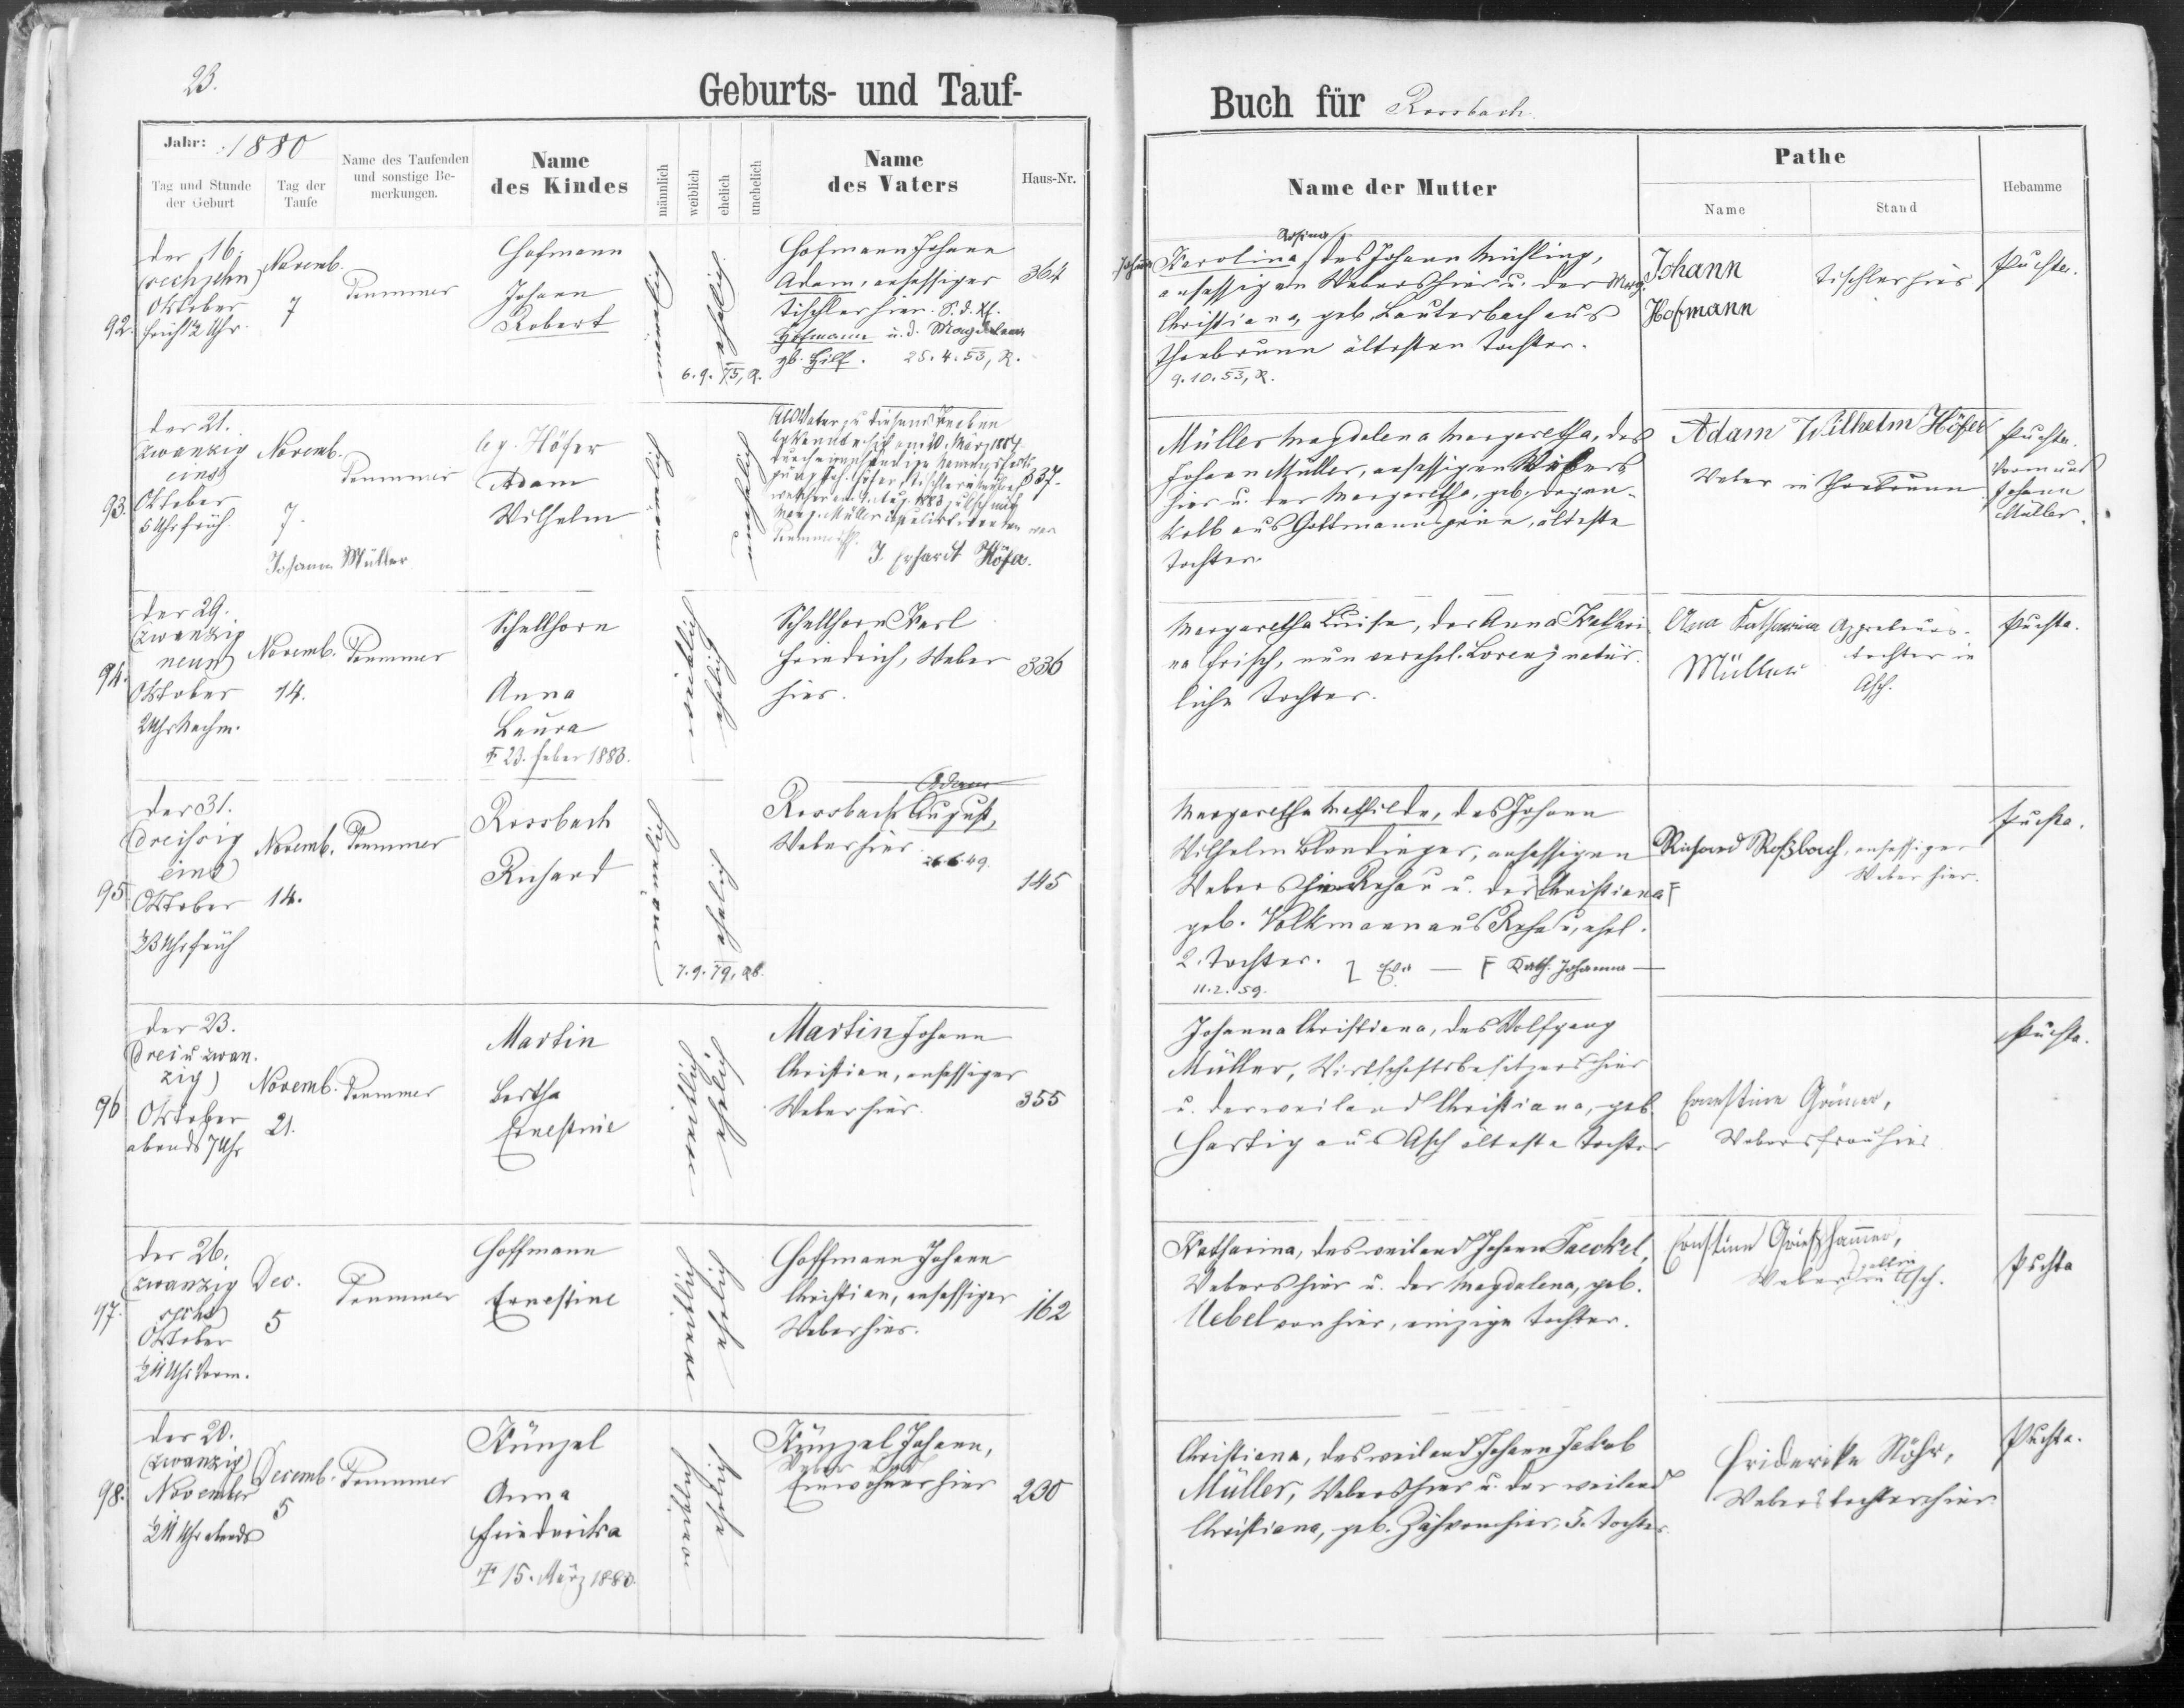 23.
Geburts- und Tauf-
Buch für Rossbach
Jahr: 1880
Tag und Stunde
der Geburt
Tag der
Taufe
Name des Taufenden
und sonstige Be-
merkungen.
Name
des Kindes
männlich
weiblich
ehelich
unehelich
Name
des Vaters
Haus-Nr.
Name der Mutter
Pathe
Name
Stand
Hebamme
92.
der 16.
(sechzehn)
Oktober
früh ½2 Uhr.
Novemb.
7
Trummer
Hofmann
Johann
Robert
männlich
ehelich
6.9.75,
Hofmann Johann
Adam, ansessiger
Tischler hier. S. d.
Hofmann u. d. Magdalena
gb. Hilf. 25.4.53, R.
364
Rosina
Johanna Karolina, des Johann Wühling,
ansessigen Webers hier u. der Mag.
Christiana, geb. Lauterbach aus
Thonbrunn ältesten Tochter.
9.10.53, R.
Johann
Hofmann
Tischler hier
Puchta.
93.
der 21.
(zwanzig
eins)
Oktober
5 Uhr früh.
Novemb.
7.
Trummer
Johann Müller
leg. Höfer
Adam
Wilhelm
männlich
unehelich
Als Vater zu diesem Kinde
J. Erhardt Höfer.
337.
Müller Magdalena Margaretha, des
Johann Müller, ansessigen Webers
hier u. der Margaretha, geb.
Kolb aus Gottmannsgrün, älteste
Tochter.
Adam Wilhelm Höfer
Weber in Thonbrunn
Puchta.
Vormund
Johann
Müller.
94.
der 29.
(zwanzig
neun)
Oktober
2 Uhr Nachm.
Novemb.
14.
Trummer
Schellhorn
Anna
Laura
† 23. Feber 1883.
weiblich
ehelich
Schellhorn Karl
Friedrich, Weber
hier.
336
Margaretha Luise, der Anna Kathari
na Frisch, nun verehel. Lorenz natür
liche Tochter.
Anna Katharina
Müller
Appreteurs-
tochter in
Asch.
Puchta.
95.
der 31.
(dreissig
eins)
Oktober
½3 Uhr früh
Novemb.
14.
Trummer
Rossbach
Richard
männlich
ehelich
7.9.79,
Adam
Rossbach August,
Weber hier
26.6.49.
145
Margaretha Mathilde, des Johann
Wilhelm Blendinger, ansessigen
Webers Rehau u. der Christiana F
geb. Volkmann aus Rehau, ehel.
2. Tochter. Eva — F Kath. Johanna —
11.2.59.
Richard Roßbach, ansessiger
Weber hier.
Puchta.
96
der 23.
(drei u. zwan-
zig)
Oktober
abends 7 Uhr
Novemb.
21.
Trummer
Martin
Bertha
Ernestine
weiblich
ehelich
Martin Johann
Christian, ansessiger
Weber hier.
355
Johanna Christiana, des Wolfgang
Müller, Wirtschaftsbesitzers hier
u. der weiland Christiana, geb.
Hartig aus Asch älteste Tochter
Ernestine Grimer,
Webersfrau hier
Puchta.
97.
der 26.
(zwanzig
sechs)
Oktober
½11 Uhr Vorm.
Dec.
5
Trummer
Hoffmann
Ernestine
weiblich
ehelich
Hoffmann Johann
Christian, ansessiger
Weber hier.
162
Katharina, des weiland Johann Jaeckel,
Webers hier u. der Magdalena, geb.
Uebel von hier, einzige Tochter.
Ernstine Grießhammer,
Weber in Asch.
Puchta
98.
der 20.
(zwanzig)
November
½11 Uhr abends
Decemb.
5
Trummer
Künzel
Anna
Friederika
† 15. März 1880.
weiblich
ehelich
Künzel Johann,
Weber und
Einwohner hier
230
Christiana, des weiland Johann Jakob
Müller, Webers hier u. der weiland
Christiana, geb. Zäh von hier, 5. Tochter
Friderike Röhr,
Weberstochter hier
Puchta.